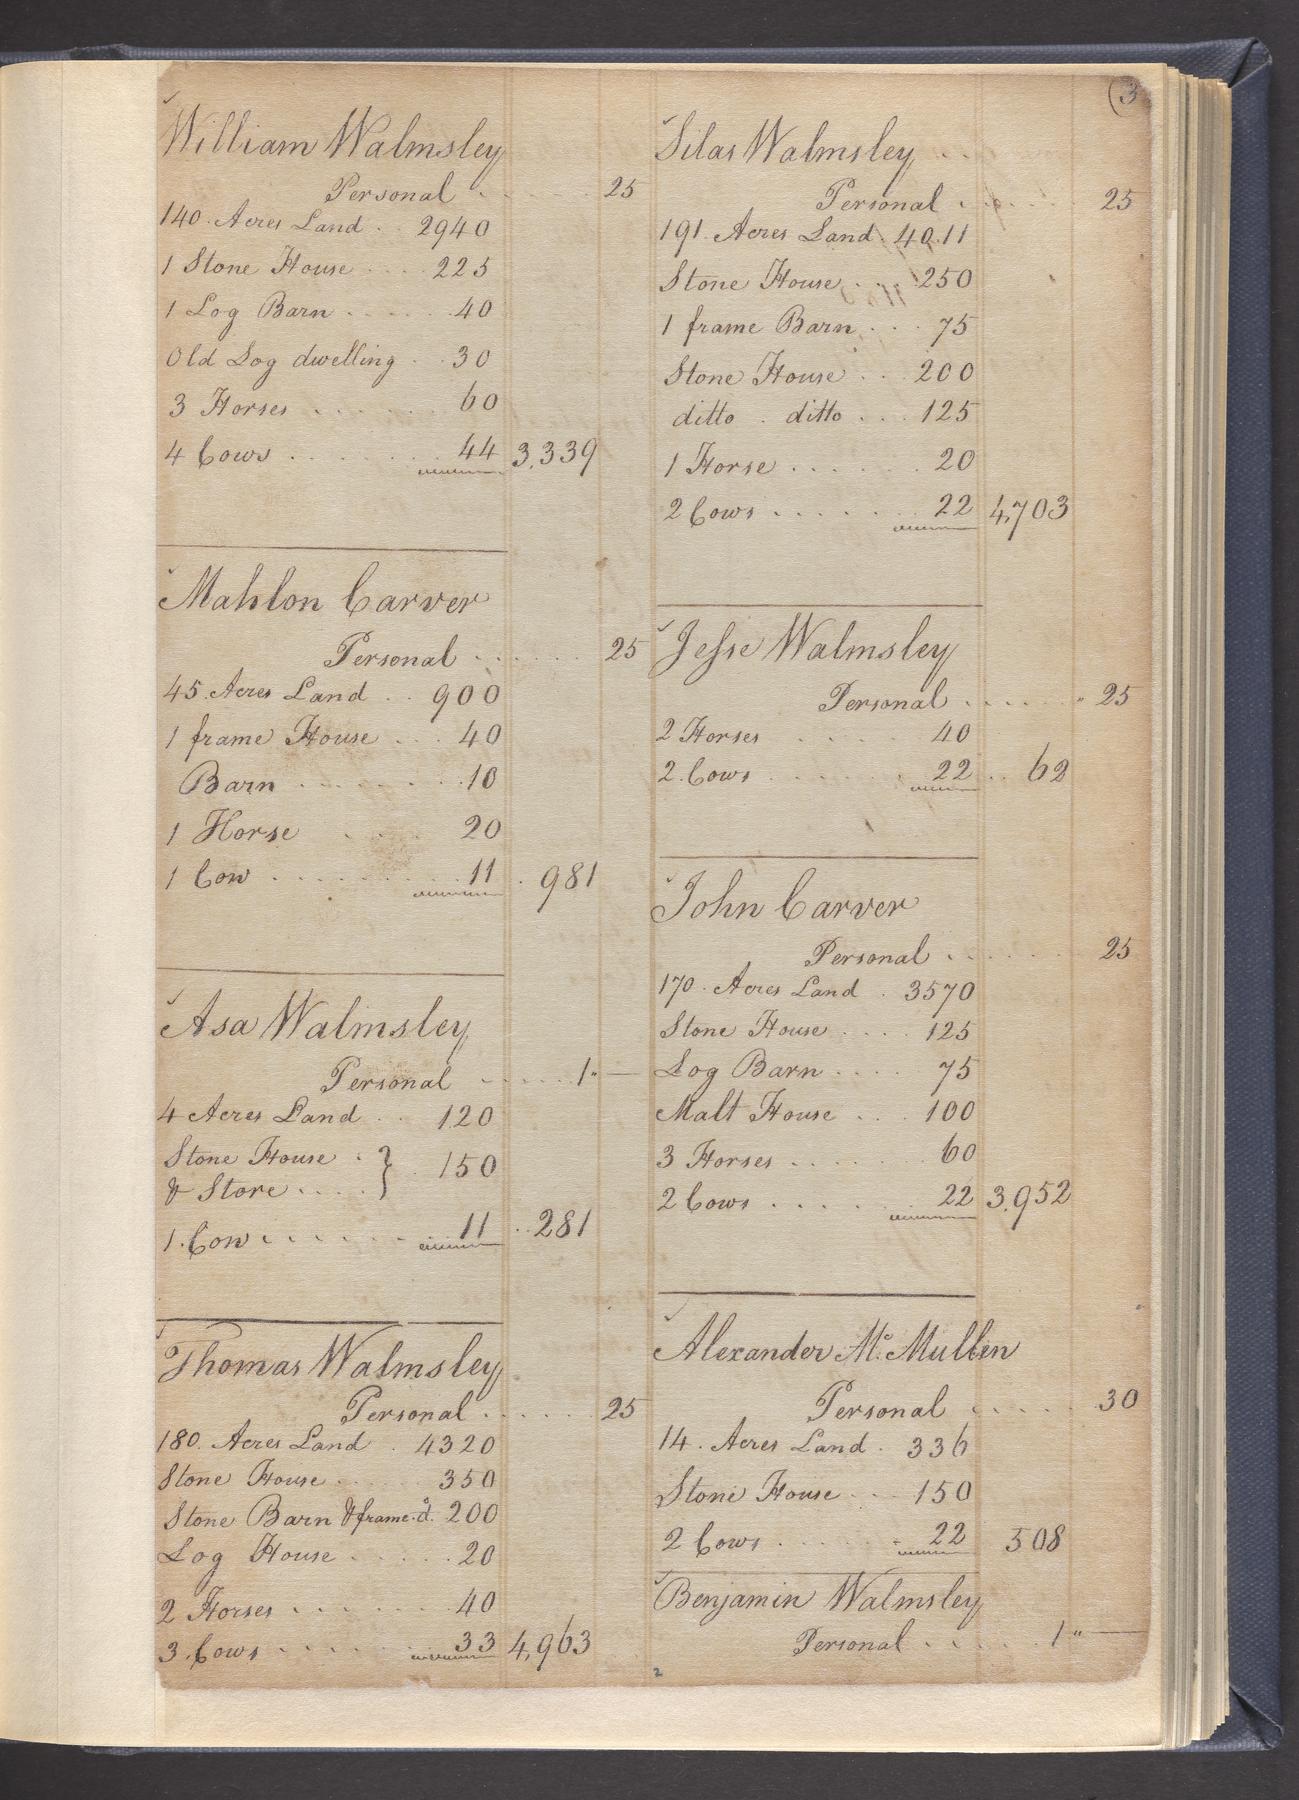 (3
William Walmsley
Personal . . . . . 25
140. Acres Land . . 2940
1 Stone House . . . . 225
1 Log Barn . . . . . 40
Old Log dwelling . . 30
3 Horses . . . . . . 60
4 Cows . . . . . . . 44 3,339
Mahlon Carver
Personal . . . . . . 25
45. Acres Land . . 900
1 frame House . . . 40
Barn . . . . . . . 10
1 Horse . . . . 20
1 Cow . . . . . . . . 11 . 981
Asa Walmsley
Personal . . . . . 1 " —
4 Acres Land . . 120
Stone House . } . 150
& Store . . . .
1. Cow . . . . . . . 11 . . 281
Thomas Walmsley
Personal . . . . . 25
180. Acres Land . 4320
Stone House . . . . 350
Stone Barn & frame. do. 200
Log House . . . . . 20
2 Horses . . . . . . 40
3. Cows . . . . . . . 33 4,963
Silas Walmsley . . .
Personal . . . . . 25
191. Acres Land . 4011
Stone House . . . 250
1 frame Barn . . . 75
Stone House . . . 200
ditto . ditto . . . 125
1 Horse . . . . . . 20
2 Cows . . . . . . . 22 4,703
Jesse Walmsley
Personal . . . . . . " 25
2 Horses . . . . . 40
2. Cows . . . . . . . 22 . . 62
John Carver
Personal . . . . . . 25
170. Acres Land . 3570
Stone House . . . 125
Log Barn . . . . . 75
Malt House . . . 100
3 Horses . . . . . 60
2 Cows . . . . . . . 22 3,952
Alexander Mc. Mullen
Personal . . . . . 30
14. Acres Land . 336
Stone House . . . 150
2 Cows . . . . . . . 22 508
Benjamin Walmsley
Personal . . . . . 1 " —
2